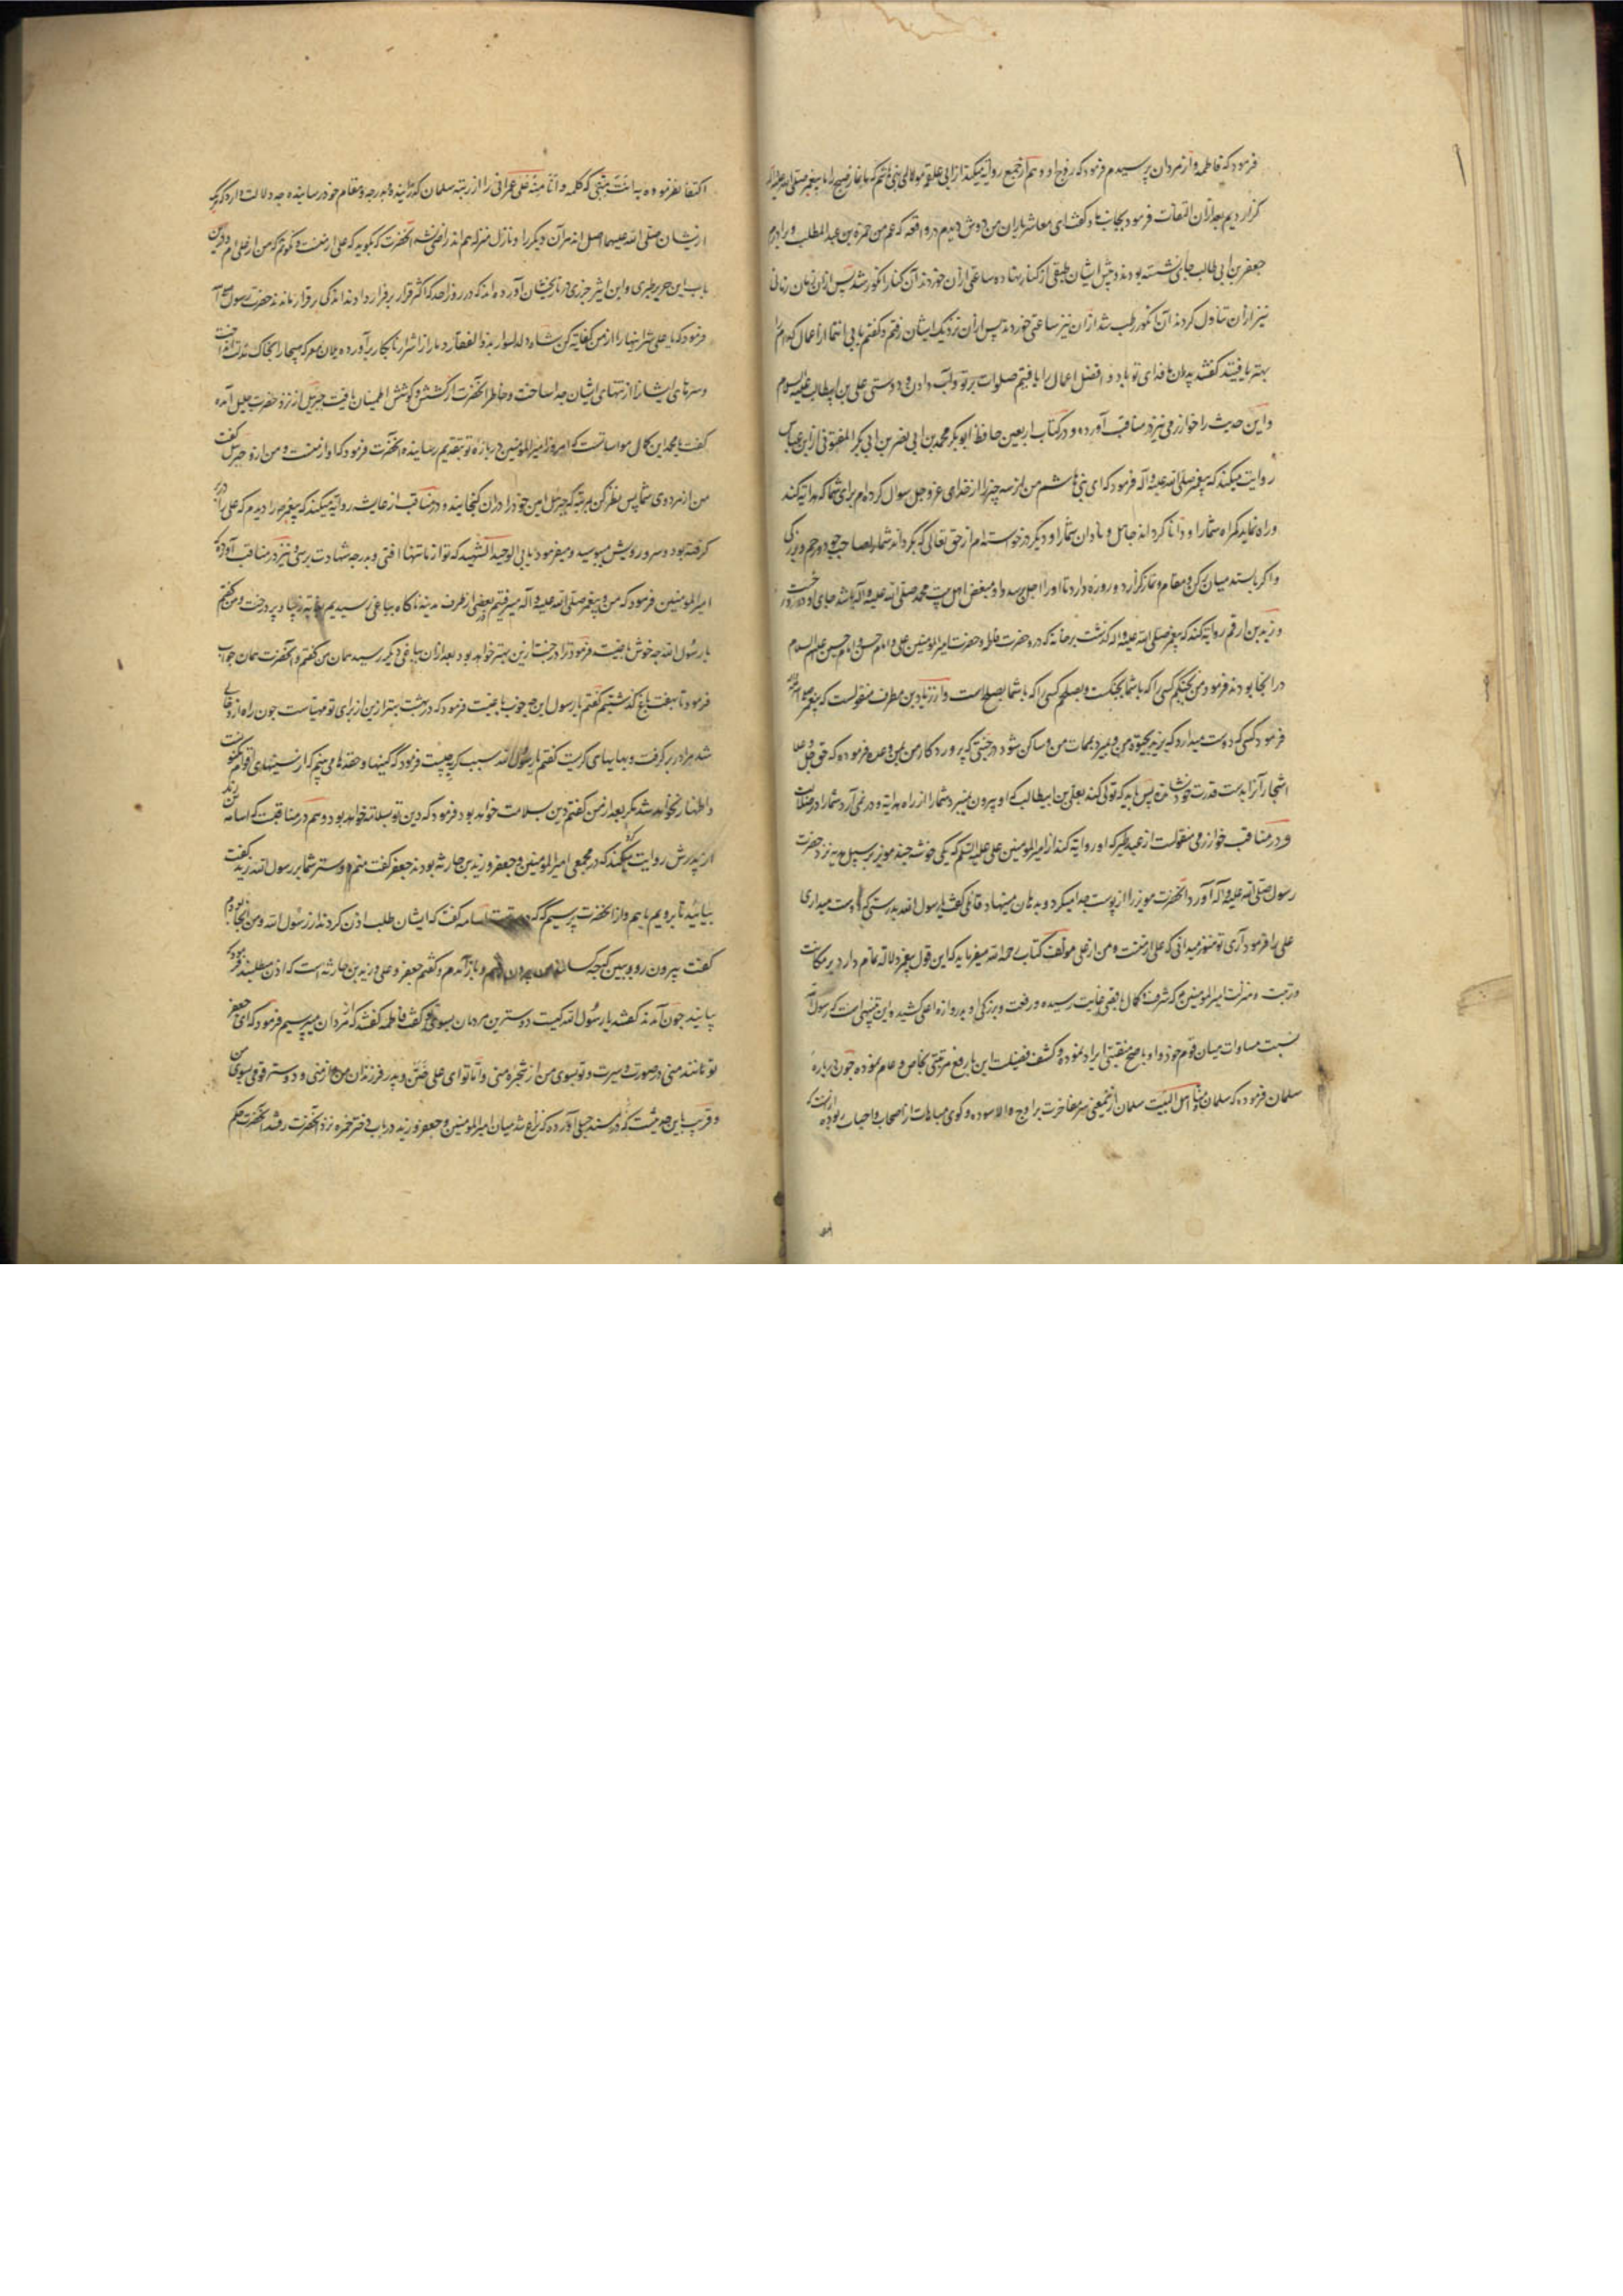 فرمود که فاطمه و از مردان پرسیدم فرمود که زوج او و هم از جمیع روایه میکند از ابی علقمه مولای بنی هاشم که ما نماز صبح را با پیغمبر صلی الله علیه و آله
گزاردیم بعد از آن التفات فرمود بجانب ما و گفت ای معاشر یاران من دوش دیدم در واقعه که عم من حمزة بن عبد المطلب و برادرم
جعفر بن ابی طالب جای نشسته بودند و پیش ایشان طبقی از کنار نهاده ساعتی از آن خوردند آن کنار انکور شد پس از آن زمان زمانی
نیز از آن تناول کردند آن انکور رطب شد از آن نیز ساعتی خوردند پس از آن نزدیک ایشان رفتم و گفتم بابی انتما از اعمال کدام را
بهتر یافتید گفتند پدران ما فدای تو باد افضل اعمال را ما یافتیم صلوات بر تو و آب دادن و دوستی علی بن ابیطالب علیه السلام
و این حدیث را خوارزمی نیز در مناقب آورده و در کتاب اربعین حافظ ابو بکر محمد بن ابی نصر بن ابی بکر المفتونی از ابن عباس
روایت میکند که پیغمبر صلی الله علیه و آله فرمود که ای بنی هاشم من از سه چیز را از خدای عز و جل سوال کرده‌ام برای شما که هدایه کند
و راه نماید گمراه شما را و دانا گرداند جاهل و نادان شما را و دیگر درخواسته‌ام از حق تعالی که بگرداند شما را صاحب جود و رحم و بزرگی
و اگر بایستد میان رکن و مقام و نماز گزارد و روزه دارد تا او را اجل برسد و او مبغض اهل بیت محمد صلی الله علیه و آله باشد جای او دوزخست
و زید بن ارقم روایه کند که پیغمبر صلی الله علیه و اله گذشت بر خانه که در و حضرت فاطمه و حضرت امیر المومنین علی و امام حسن و امام حسین علیهم السلام
در آنجا بودند فرمود من بجنگم کسی را که با شما بجنگست و بصلحم کسی را که با شما بصلح است و از زیاد بن مطرف منقولست که پیغمبر
فرمود کسی که دوست میدارد که بزید بحیوة من و بمیرد بممات من و ساکن شود در جنتی که پرورد کار من بمن وعده فرموده که حق جل و علا
اشجار آنرا بدست قدرت خود نشانده پس باید که تولی کند بعلی بن ابیطالب که او بیرون نمیبرد شما را از راه هدایه و در نمی آرد شما را در ضلالت
و در مناقب خوارزمی منقولست از عبد خیر که او روایه کند از امیر المومنین علی علیه السلم که یکی خوشه چند مویز بر سبیل هدیه نزد حضرت
رسول صلی الله علیه و آله آورد آنحضرت مویز را از پوست جدا میکرد و بدهان مینهاد قائلی گفت یا رسول الله بدرستی که دوست میداری
علی را فرمود آری تو هنوز میدانی که علی از منست و من از علی مولف کتاب رحمه الله میفرماید که این قول پیغمبر دلاله تمام دارد بر مکانت
و رتبت و منزلت امیر المومنین م که شرف و کمال باقصی غایت رسیده و رفعت و بزرگی او بدروازه اعلی کشیده و این تنبیهی است که رسول الله
نسبت مساوات میان قوم خود و او باصح منقبتی ایراد نموده و کشف فضیلت این بارفع مرتبتی بخاص و عام نموده چون درباره
سلمان فرموده که سلمان منا اهل البیت سلمان از جمیعی سر مفاخرت بر اوج سوده و کوی مباهات از اصحاب و احباب ربوده
اکتفا نفرموده به انت منی که کلمه و انا منه علی عمرانی را از رتبه سلمان گذرانیده بدرجه و مقام خود رسانیده چه دلالت دارد که هر یک
ازیشان صلی الله علیهما اصل اند مر آن دیگر را و نازل منزله هم اند راضی نشد آنحضرت که بگوید که علی از منست و نگویم که من از علی ام و درین
باب ابن جریر طبری و ابن اثیر جزری در تاریخشان آورده‌اند که در روز احد که اکثر قرار بر فرار دادند اندکی برقرار ماندند حضرت رسول
فرمود که یا علی شر اینها را از من کفایه کن شاه دلدل سوار بذو الفقار دمار از اشرار نابکار برآورده بدان معرکه هیجا را بخاک مذلت انداخت
و سرهای ایشان را از تنهای ایشان جدا ساخت و خاطر آنحضرت از کشش و کوشش اطمینان یافت جبریل از نزد حضرت جلیل آمده
گفت یا محمد این کمال مواساتست که امروز امیر المومنین درباره تو بتقدیم رسانیده آنحضرت فرمود که او از منست و من ازو جبریل گفت
من از هر دوی شما پس نظر کن بمرتبه که جبریل امین خود را در آن گنجانیده و در مناقب از عایشه روایه میکند که پیغمبر را دیدم که علی را در بر
گرفته بود و سر و رویش میبوسید و میفرمود بابی الوحید الشهید که تو از ما تنها افتی و بدرجه شهادت برسی و نیز در مناقب آورده که
امیر المومنین فرمود که من و پیغمبر صلی الله علیه و آله میرفتیم بعضی از طرف مدینه ناکاه بباغی رسیدیم بغایه زیبا و پر درخت و من گفتم
یا رسول الله چه خوش باغیست فرمود ترا در جنت ازین بهتر خواهد بود بعد از آن بباغی دیگر رسید همان من گفتم و آنحضرت همان جواب
فرمود تا بهفت باغ گذشتیم گفتم یا رسول این چه خوب باغیست فرمود که در بهشت بهتر ازین از برای تو مهیاست چون راه از و خالی
شد مرا در بر گرفت و بهایهای گریست گفتم یا رسول الله سبب گریه چیست فرمود که کینها و حقدها می بینم که از سینهای اقوام که
اظهار نخواهد شد مکر بعد از من گفتم دین بسلامت خواهد بود فرمود که دین تو بسلامه خواهد بود و هم در مناقبست که اسامه بن زید
از پدرش روایت میکند که در مجمعی امیر المومنین و جعفر و زید بن حارثه بودند جعفر گفت منم دوستر شما بر رسول الله زید گفت
بیائید تا برویم باهم و از آنحضرت پرسیم که اسامه گفت که ایشان طلب اذن کردند از رسول الله و من آنجا بودم
گفت بیرون رو و ببین که چه کسانند من بیرون رفتم و باز آمدم و گفتم جعفر و علی و زید بن حارثه است که اذن میطلبند فرمود که
بیایند چون آمدند گفتند یا رسول الله کیست دوسترین مردمان بسوی تو گفت فاطمه گفتند که از مردان میپرسیم فرمود که ای جعفر
تو مانند منی در صورت و سیرت و تو بسوی من از شجره منی و اما تو ای علی ختن و پدر فرزندان من و از منی و دوستر قومی بسوی من
و قریب باین حدیثست که در مسند حنبل آورده که نزاع شد میان امیر المومنین و جعفر و زید در باب دختر حمزه نزد آنحضرت رفتند آنحضرت حکم